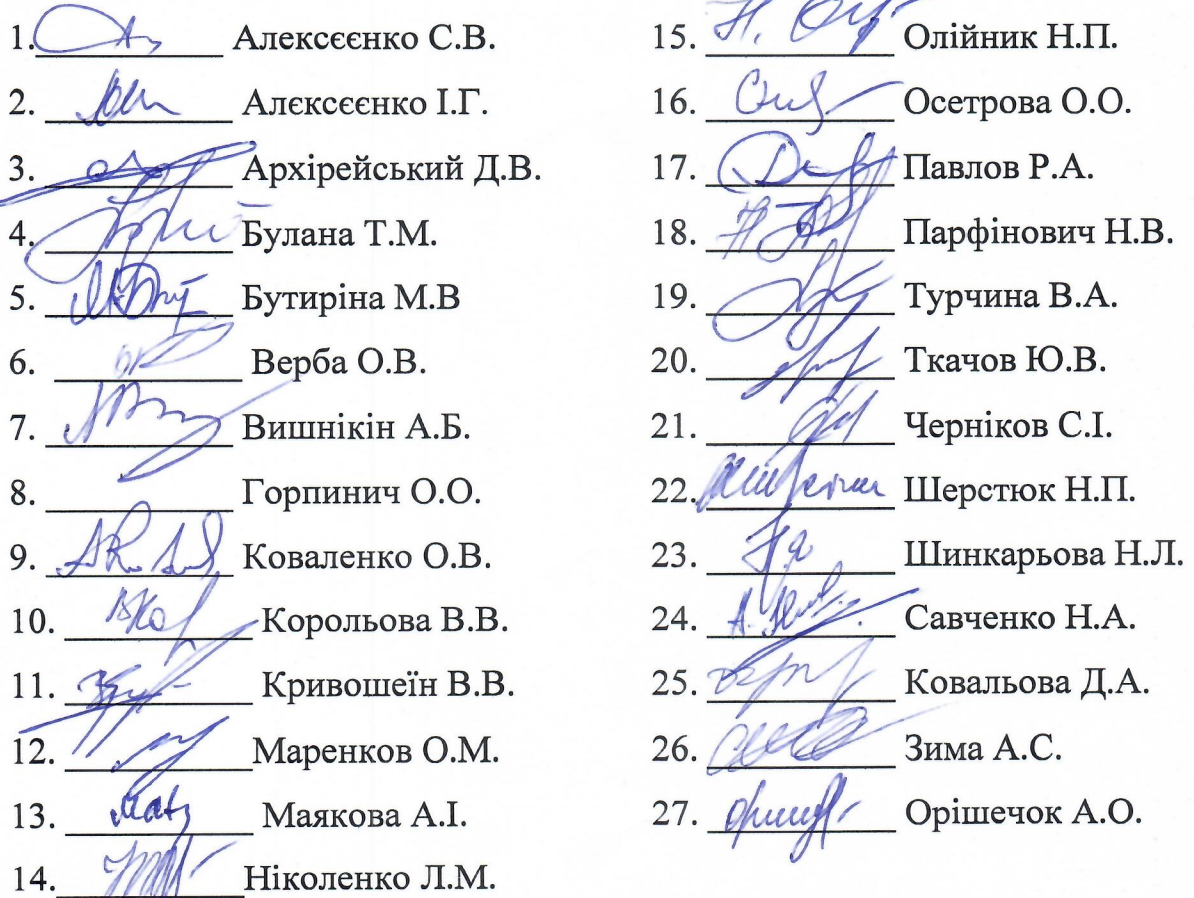 1. Алексєєнко С.В.
2. Алєксєєнко І.Г.
3. Архірейський Д.В.
4. Булана Т.М.
5. Бутиріна М.В
6. Верба О.В.
7. Вишнікін А.Б.
8. Горпинич О.О.
9. Коваленко О.В.
10. Корольова В.В.
11. Кривошеїн В.В.
12. Маренков О.М.
13. Маякова А.І.
14. Ніколенко Л.М.
15. Олійник Н.П.
16. Осетрова О.О.
17. Павлов Р.А.
18. Парфінович Н.В.
19. Турчина В.А.
20. Ткачов Ю.В.
21. Черніков С.І.
22. Шерстюк Н.П.
23. Шинкарьова Н.Л.
24. Савченко Н.А.
25. Ковальова Д.А.
26. Зима А.С.
27. Орішечок А.О.